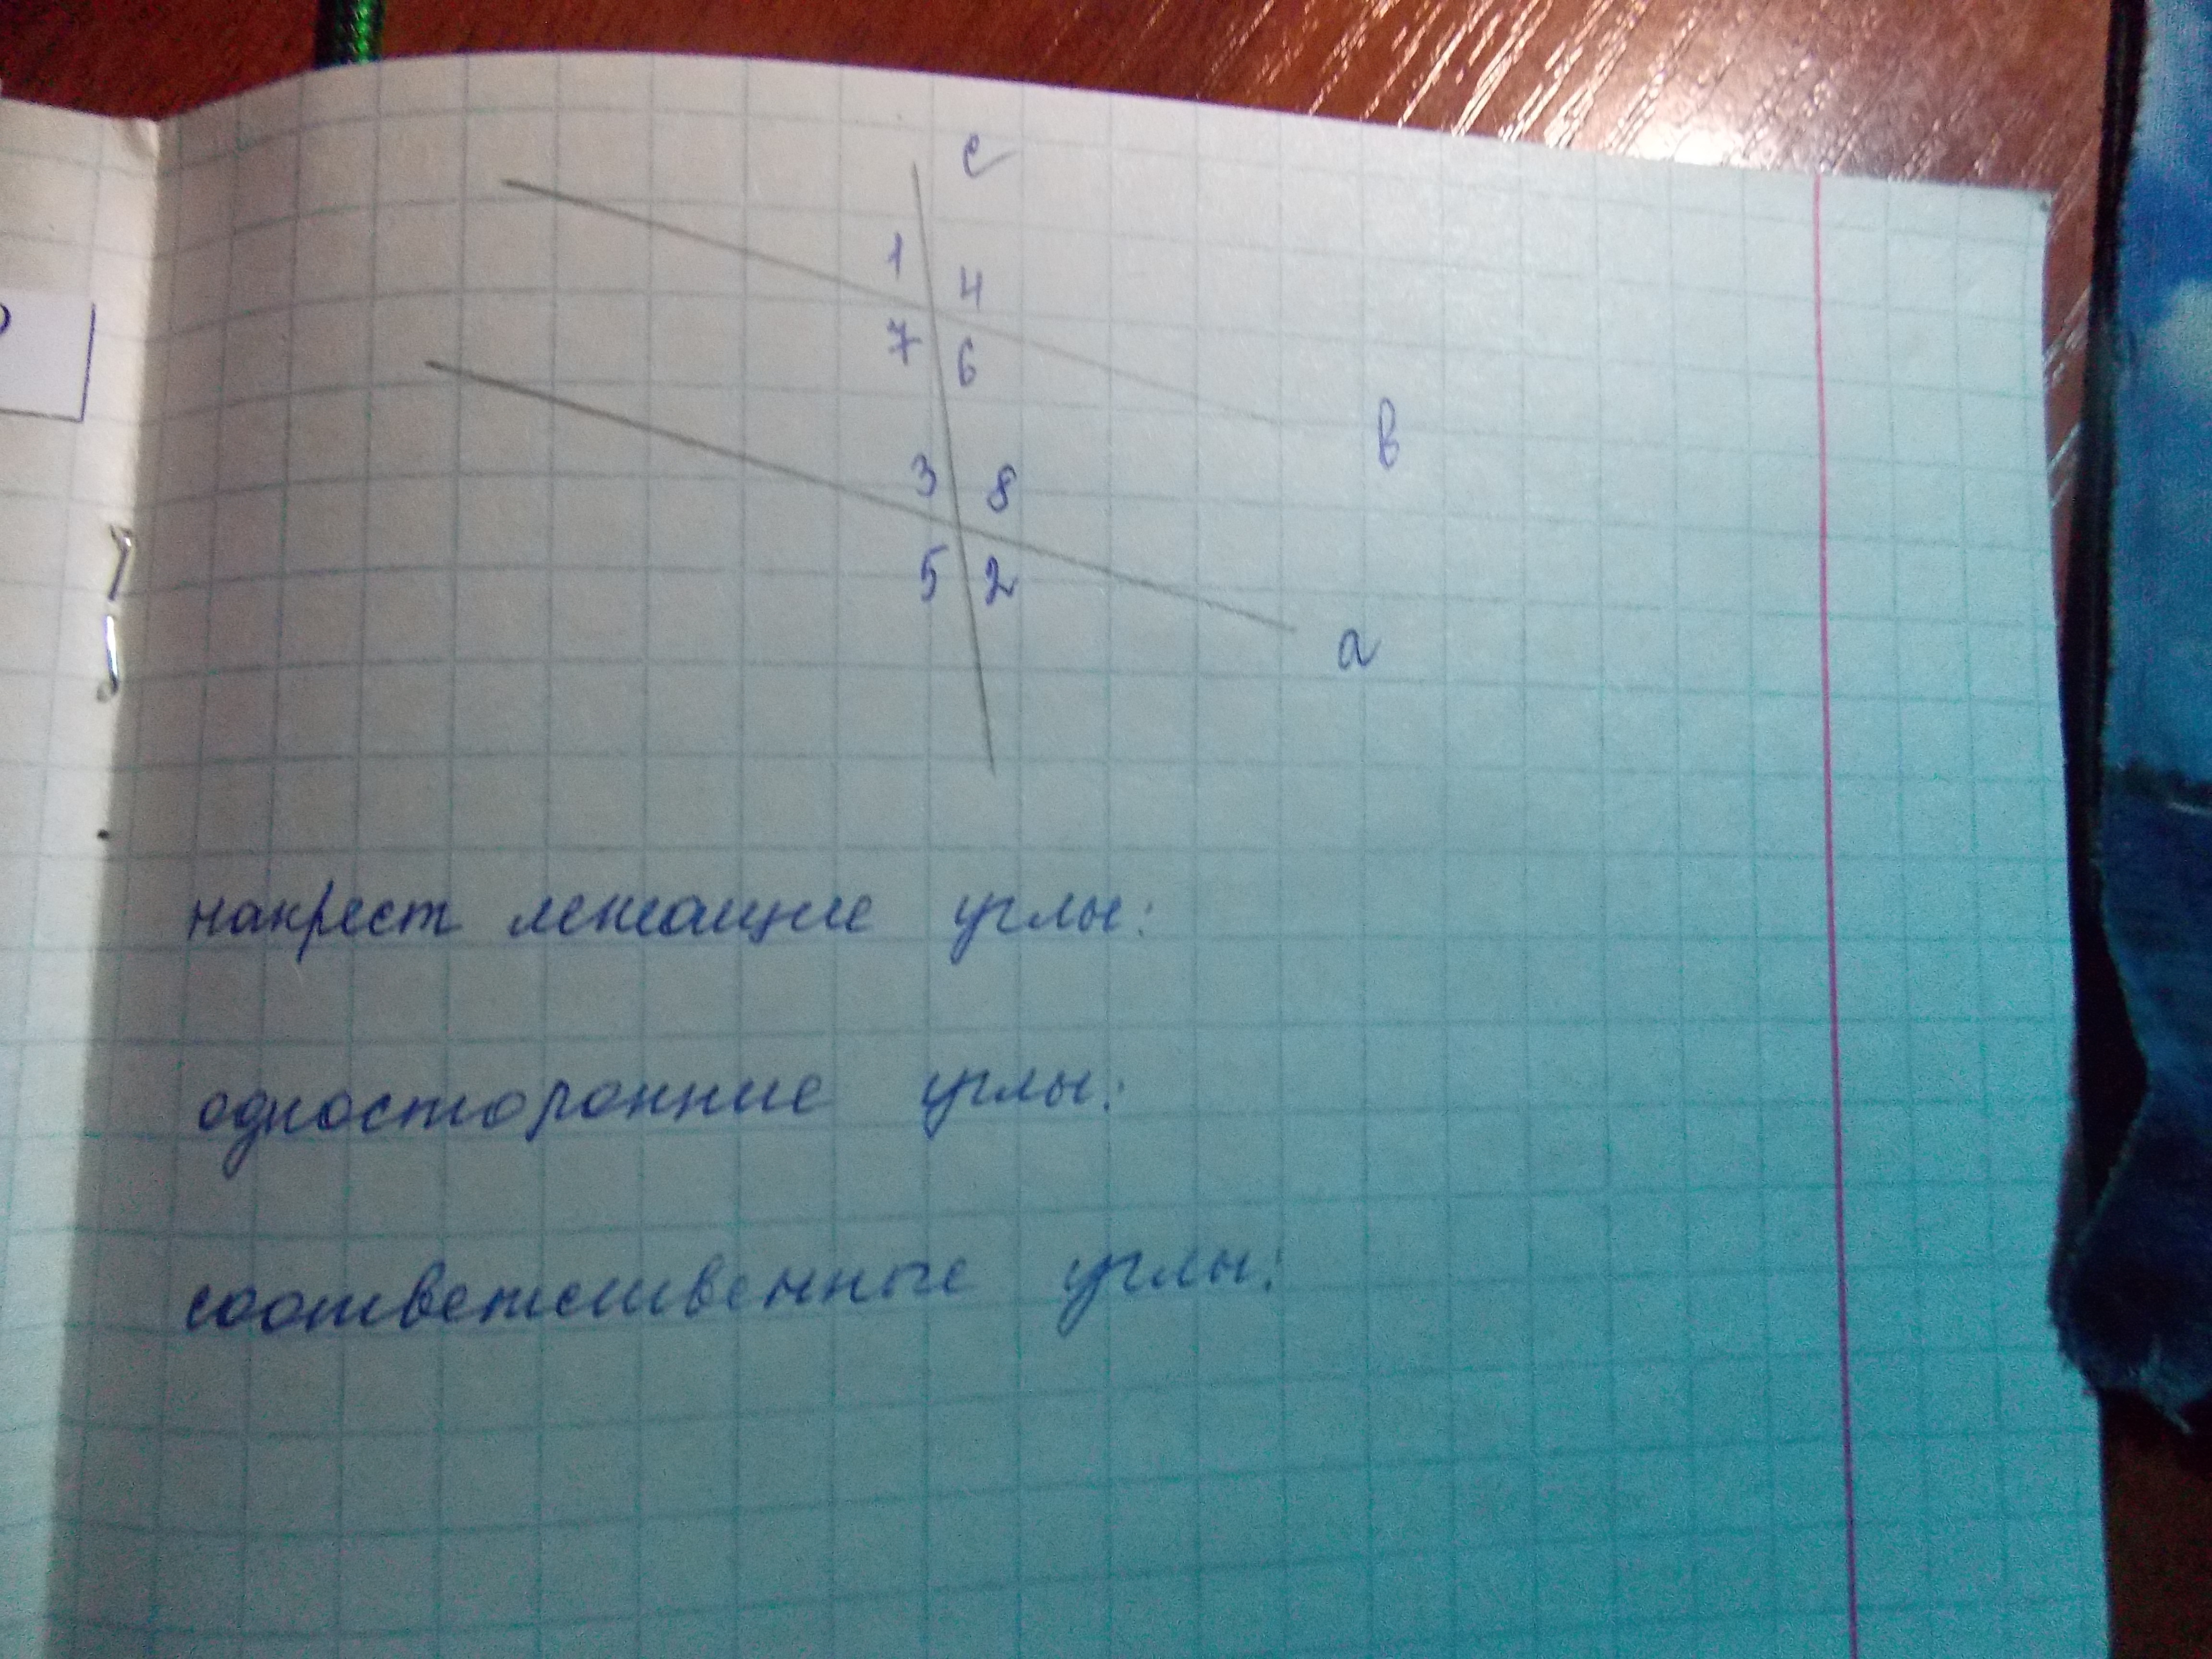 с
1 4
7 6
в
3 8
5 2
а
накрест лежащие углы:
односторонние углы:
соответственные углы: